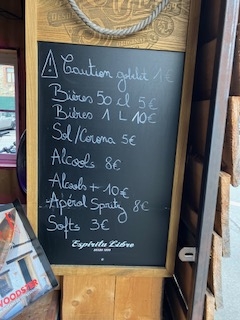 ⚠ Caution gobelet 1€
Bières 50 cl 5€
Bières 1 L 10€
Sol/Corona 5€
Alcools 8€
Alcools + 10€
Apérol Spritz 8€
Softs 3€
Espíritu Libre
WOODSTER